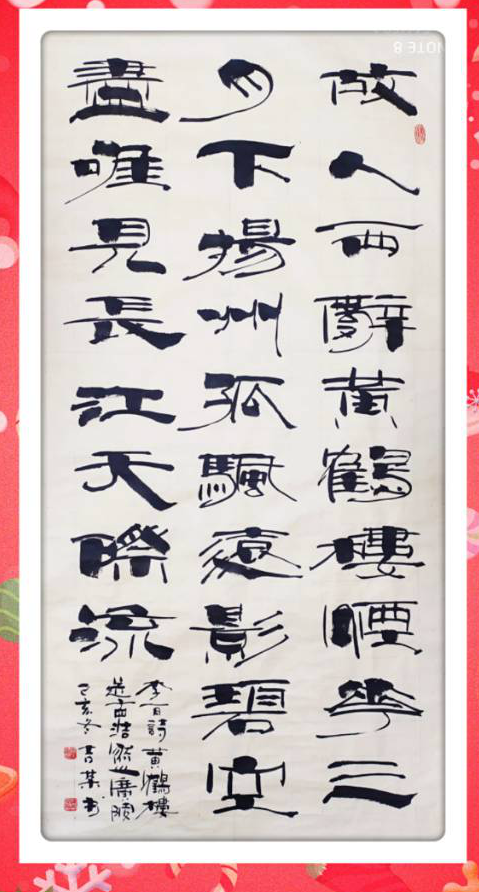 NOTE 8
故人西辭黄鶴樓煙華三
月下揚州孤颿遠影碧空
盡唯見長江天際流
李白詩黄鶴樓
送孟浩然之廣陵
己亥冬書